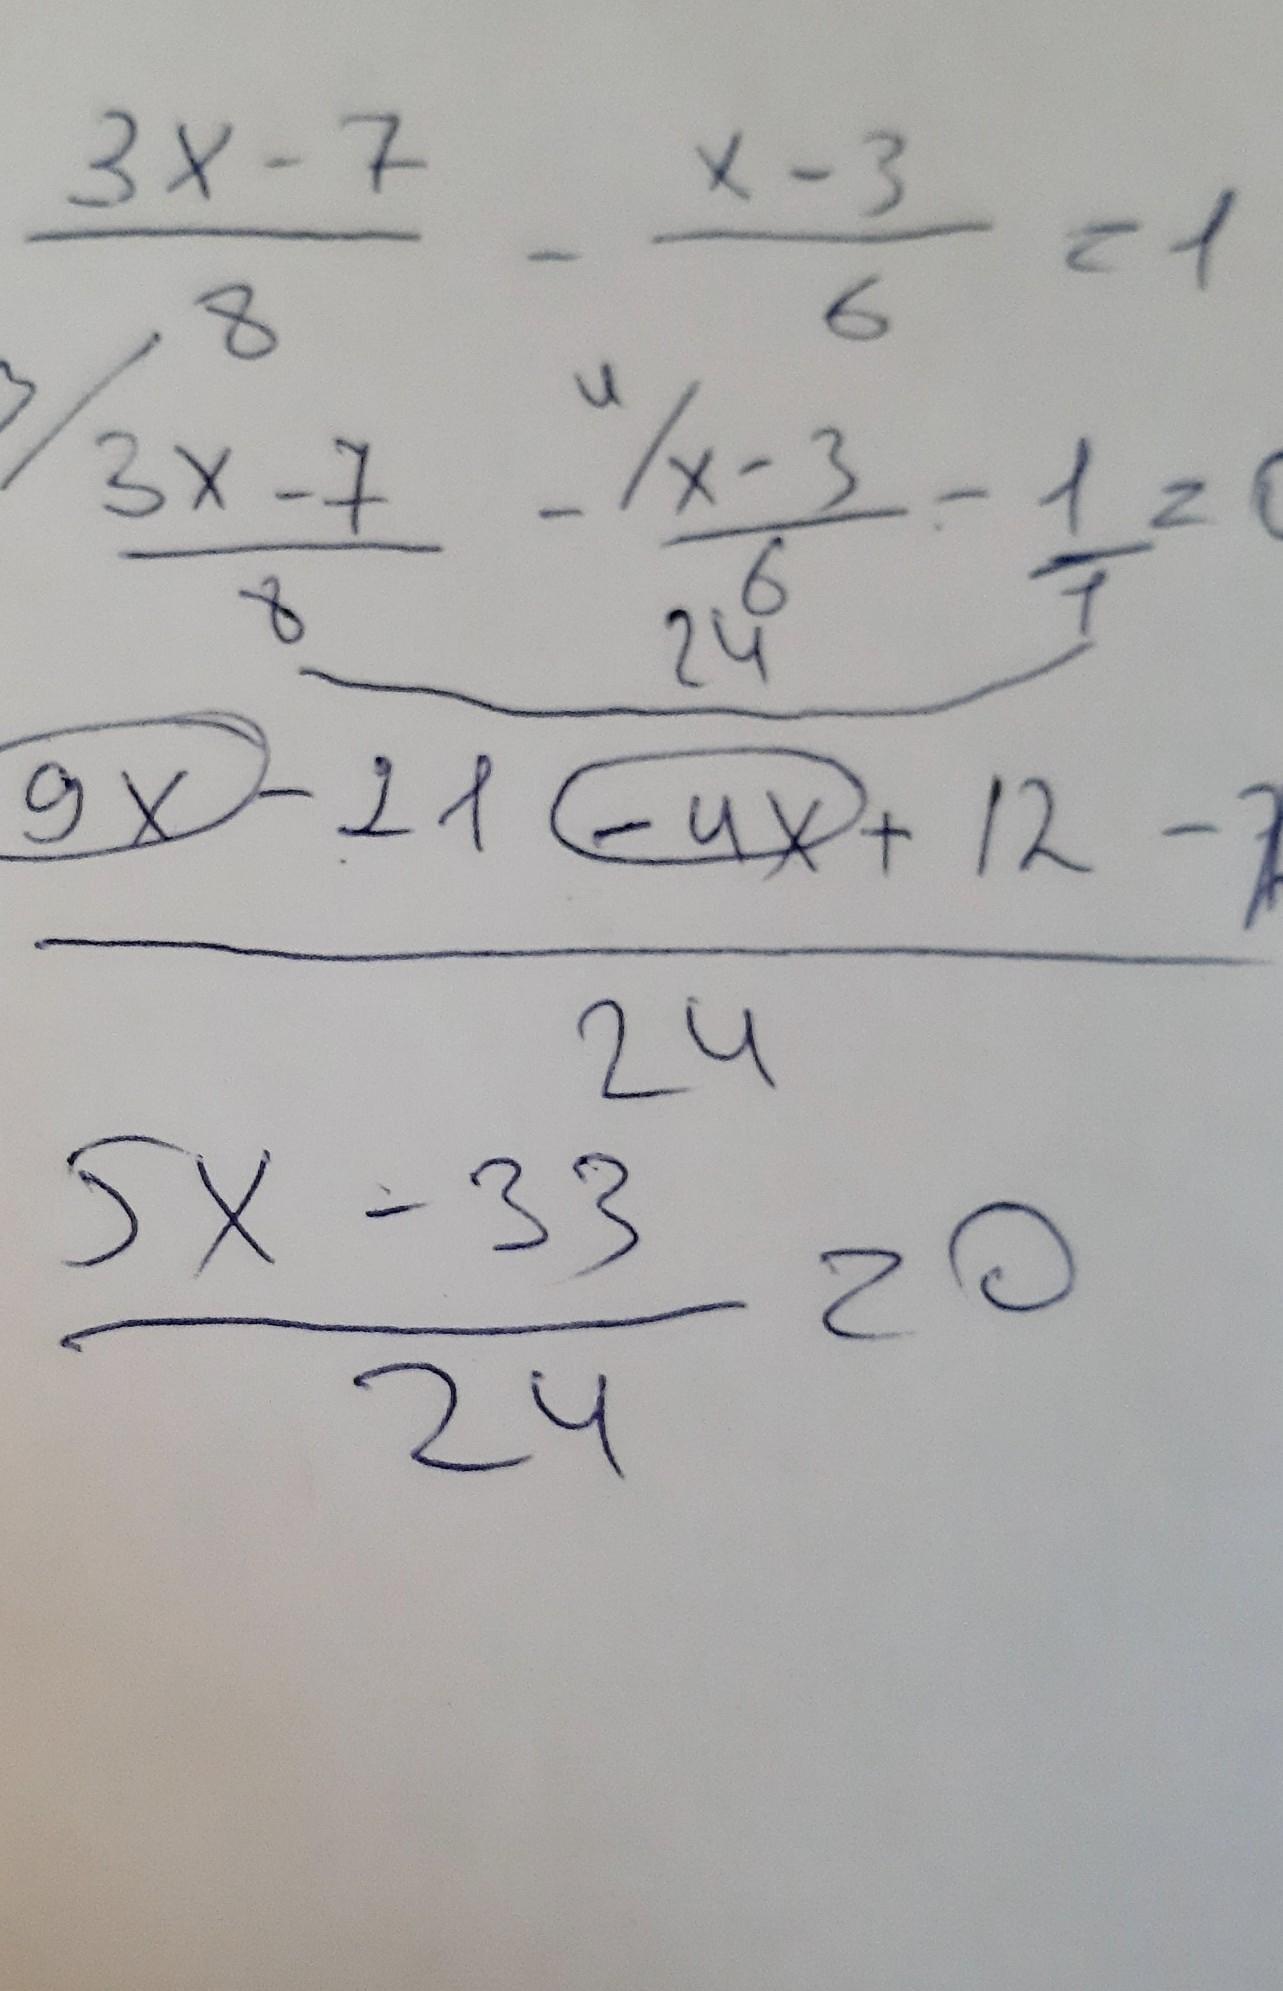 3x - 7 / 8 - x - 3 / 6 = 1
3/ 3x - 7 / 8 - 4/ x - 3 / 6 - 1 / 1 = 0
24
9x - 21 - 4x + 12 -
24
5x - 33 / 24 = 0